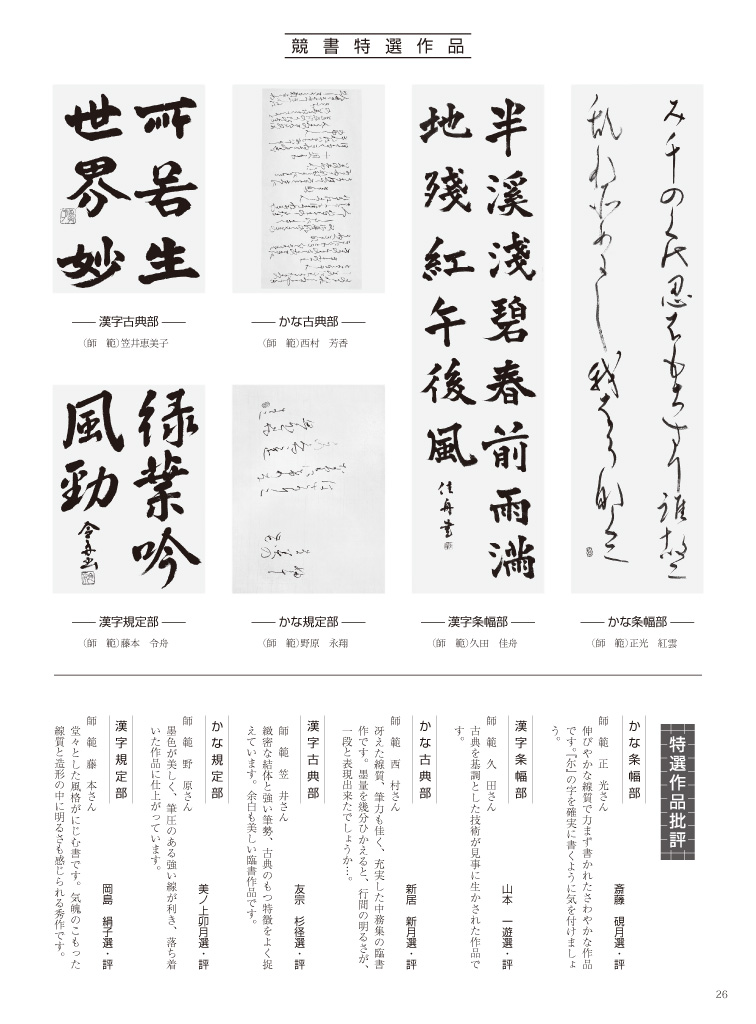 競書特選作品
み千のくの忍ふもちすり誰故に
乱れそめにし我ならなくに
半溪淺碧春前雨滿
地殘紅午後風
佳舟書
所若生
世界妙
緑葉吟
風勁
令舟書
漢字古典部
(師　範)笠井恵美子
かな古典部
(師　範)西村　芳香
漢字規定部
(師　範)藤本　令舟
かな規定部
(師　範)野原　永翔
漢字条幅部
(師　範)久田　佳舟
かな条幅部
(師　範)正光　紅雲
特選作品批評
かな条幅部
斎藤　硯月選・評
師　範　正　光さん
伸びやかな線質で力まず書かれたさわやかな作品
です。『尓』の字を確実に書くように気を付けましょ
う。
漢字条幅部
山本　一遊選・評
師　範　久　田さん
古典を基調とした技術が見事に生かされた作品で
す。
かな古典部
新居　新月選・評
師　範　西　村さん
冴えた線質、筆力も佳く、充実した中務集の臨書
作です。墨量を幾分ひかえると、行間の明るさが、
一段と表現出来たでしょうか…。
漢字古典部
友宗　杉径選・評
師　範　笠　井さん
緻密な結体と強い筆勢、古典のもつ特徴をよく捉
えています。余白も美しい臨書作品です。
かな規定部
美ノ上卯月選・評
師　範　野　原さん
墨色が美しく、筆圧のある強い線が利き、落ち着
いた作品に仕上がっています。
漢字規定部
岡島　絹子選・評
師　範　藤　本さん
堂々とした風格がにじむ書です。気魄のこもった
線質と造形の中に明るさも感じられる秀作です。
26